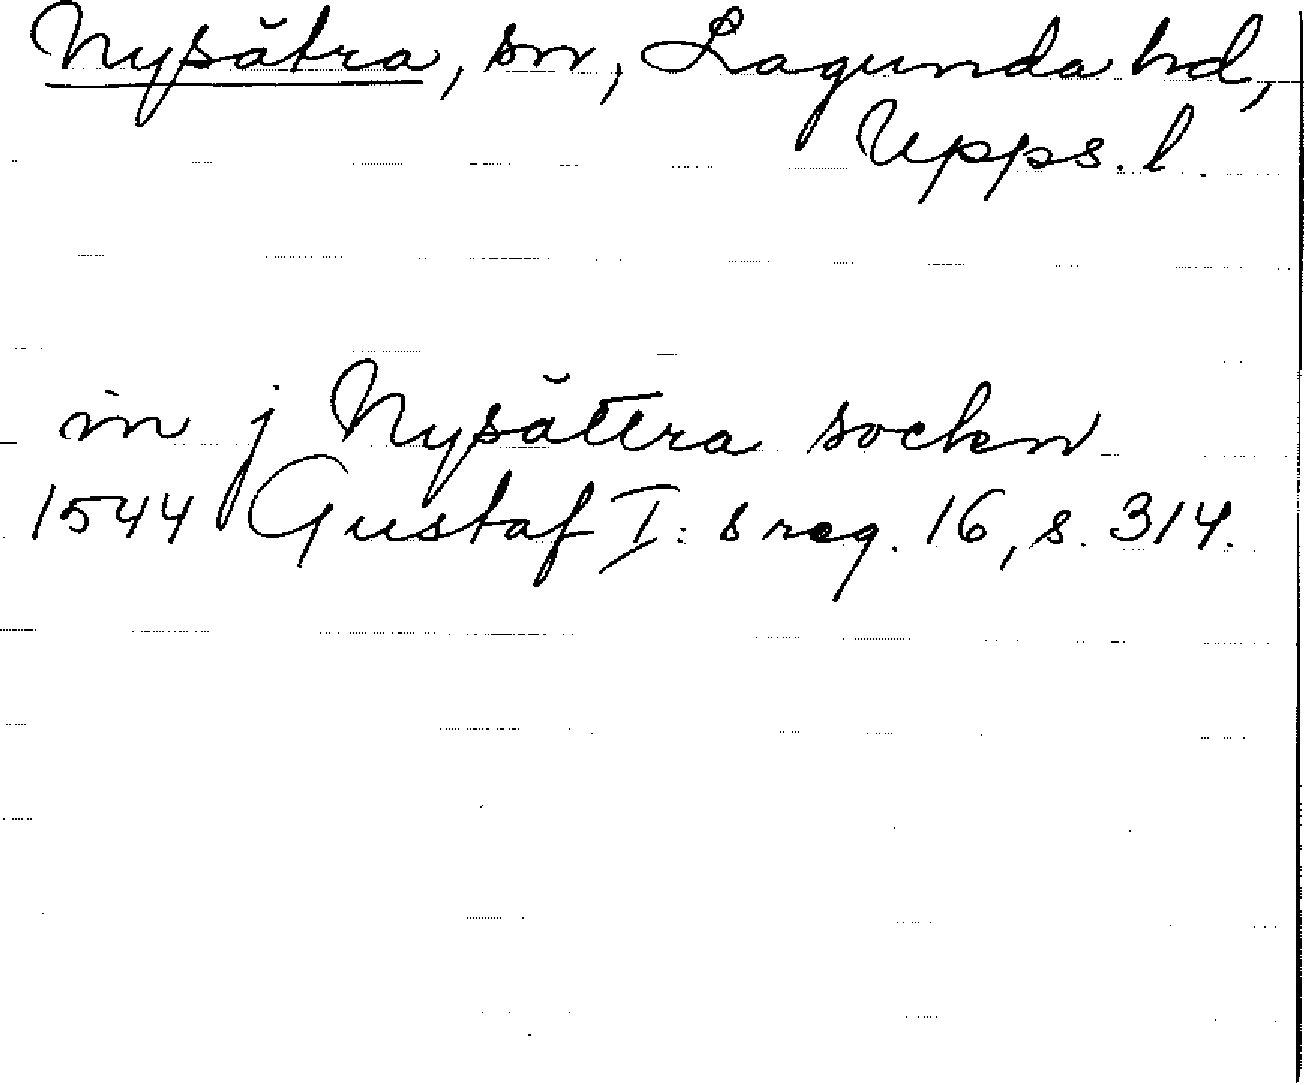 Nysätra, sn, Lagunda hd,
Upps. l.
in j Nysättra socken
1544 Gustaf I:s reg. 16, s. 314.